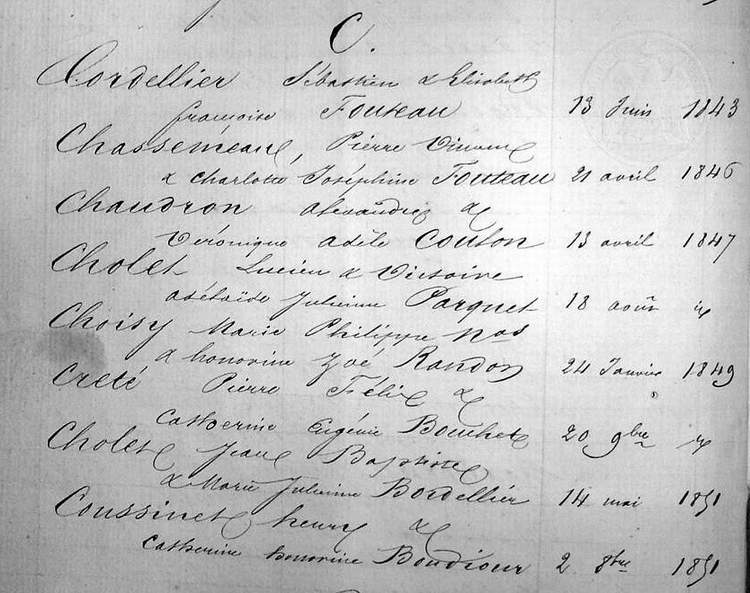 C.
Cordellier Sébastien & Elisabeth
françoise Fouteau 13 Juin 1843
Chasseméaux, Pierre Vincent
& Charlotte Joséphine Fouteau 21 avril 1846
Chaudron alexandre &
Véronique adèle Couton 13 avril 1847
Cholet Lucien & Victoire
adélaïde Julienne Parquet 18 août
Choisy Marie Philippe
& honorine Zoé Randon 24 Janvier 1849
Creté Pierre Félix &
Catherine Eugénie Bouchet 20 9bre
Cholet Jean Baptiste
& Marie Julienne Bordellier 14 mai 1851
Coussinet henry &
Catherine honorine 2 8bre 1851